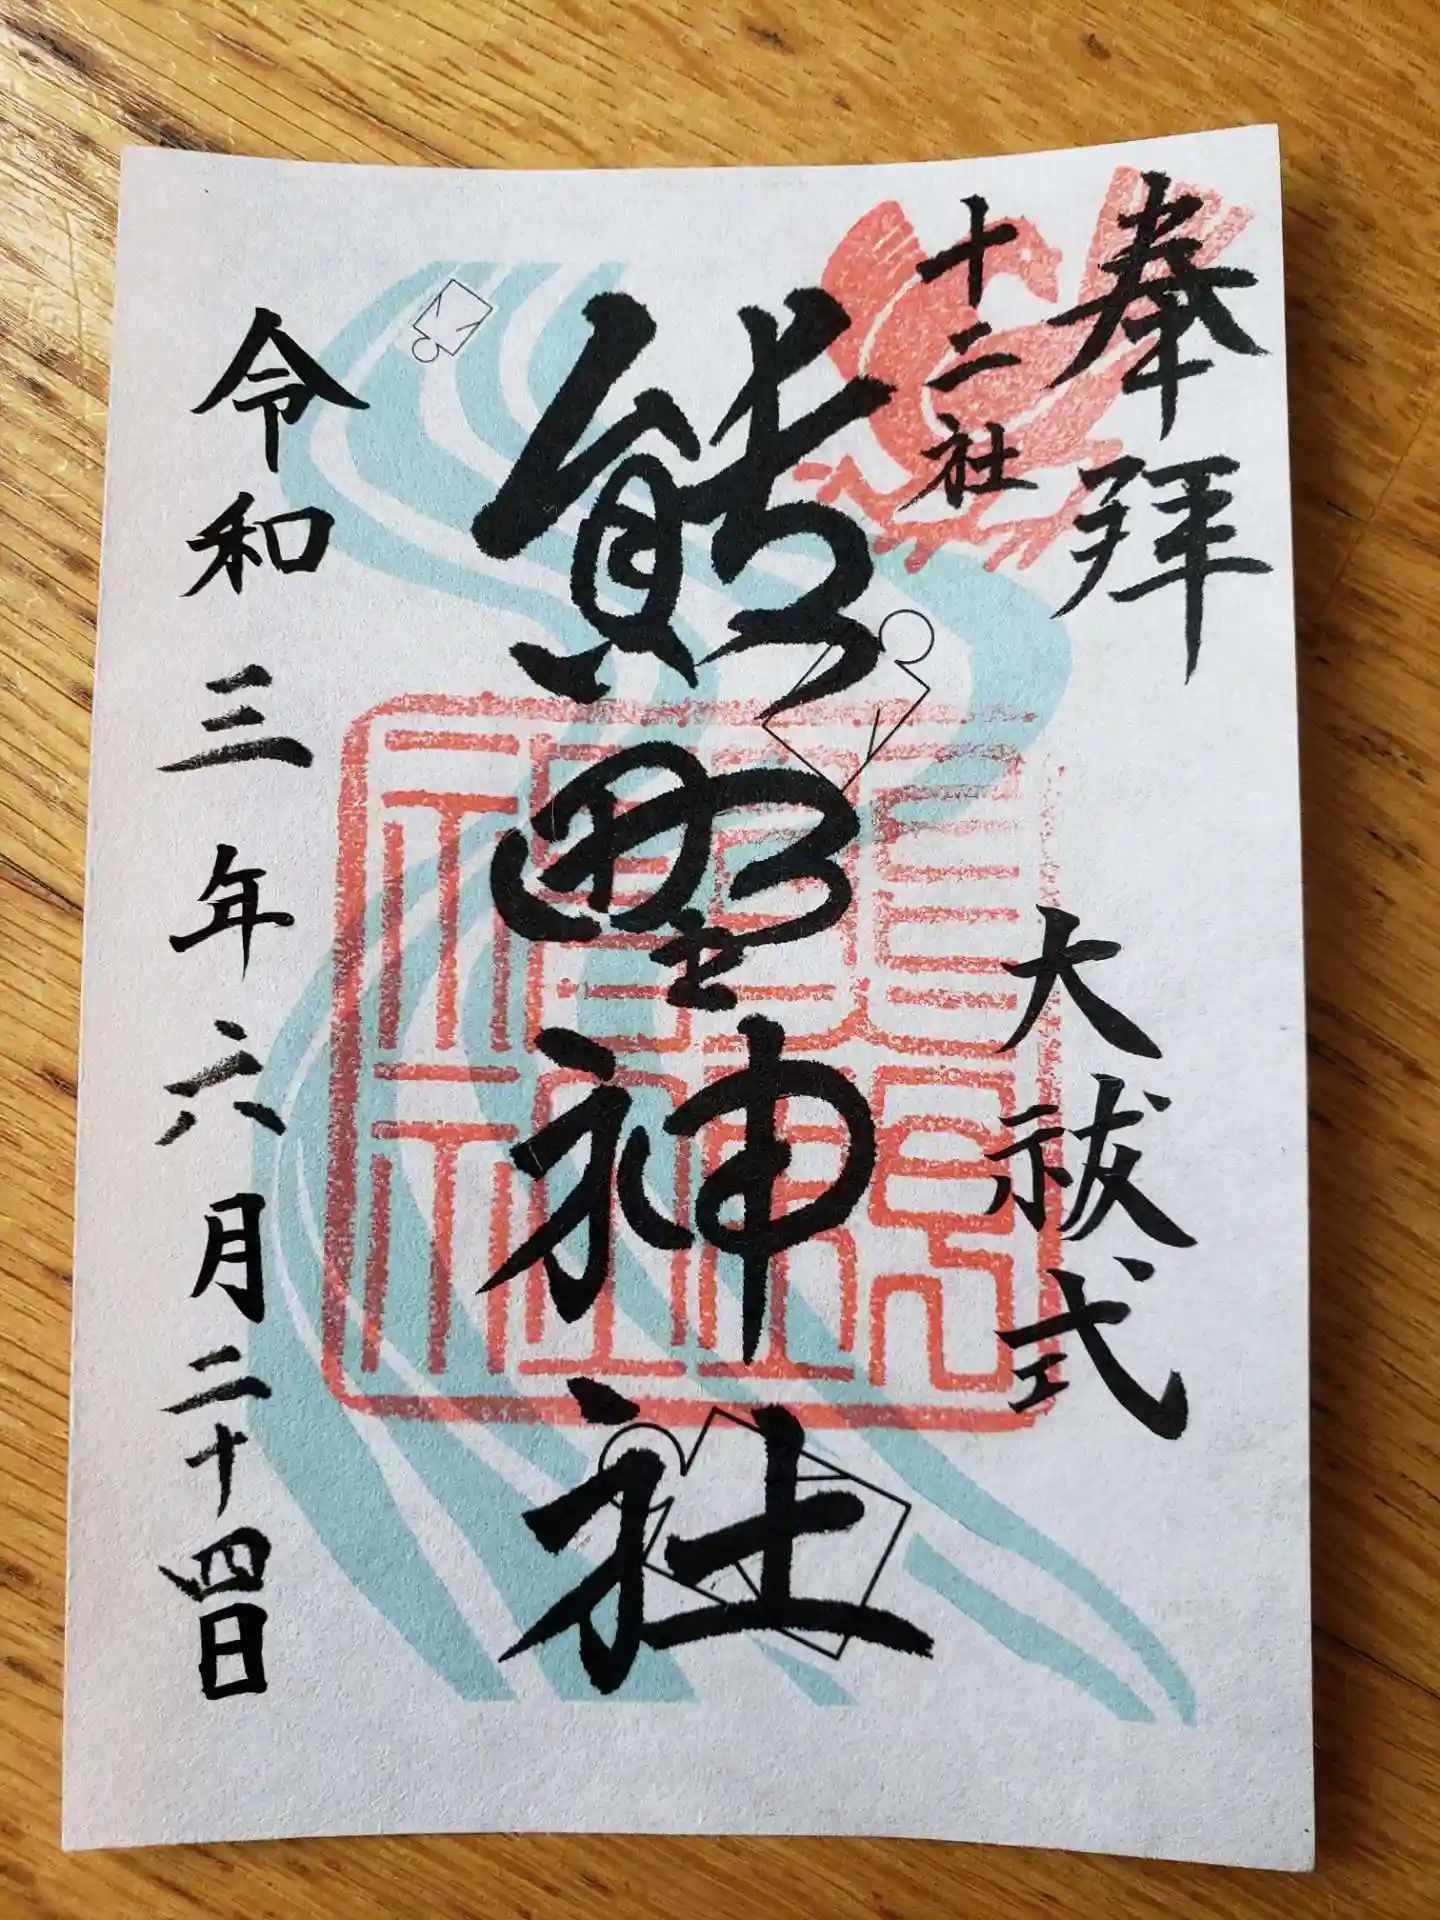 奉拝
十二社
大祓式
熊野神社
令和三年六月二十四日